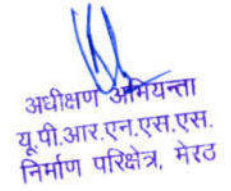 अधीक्षण अभियन्ता
यू.पी.आर.एन.एस.एस.
निर्माण परिक्षेत्र, मेरठ